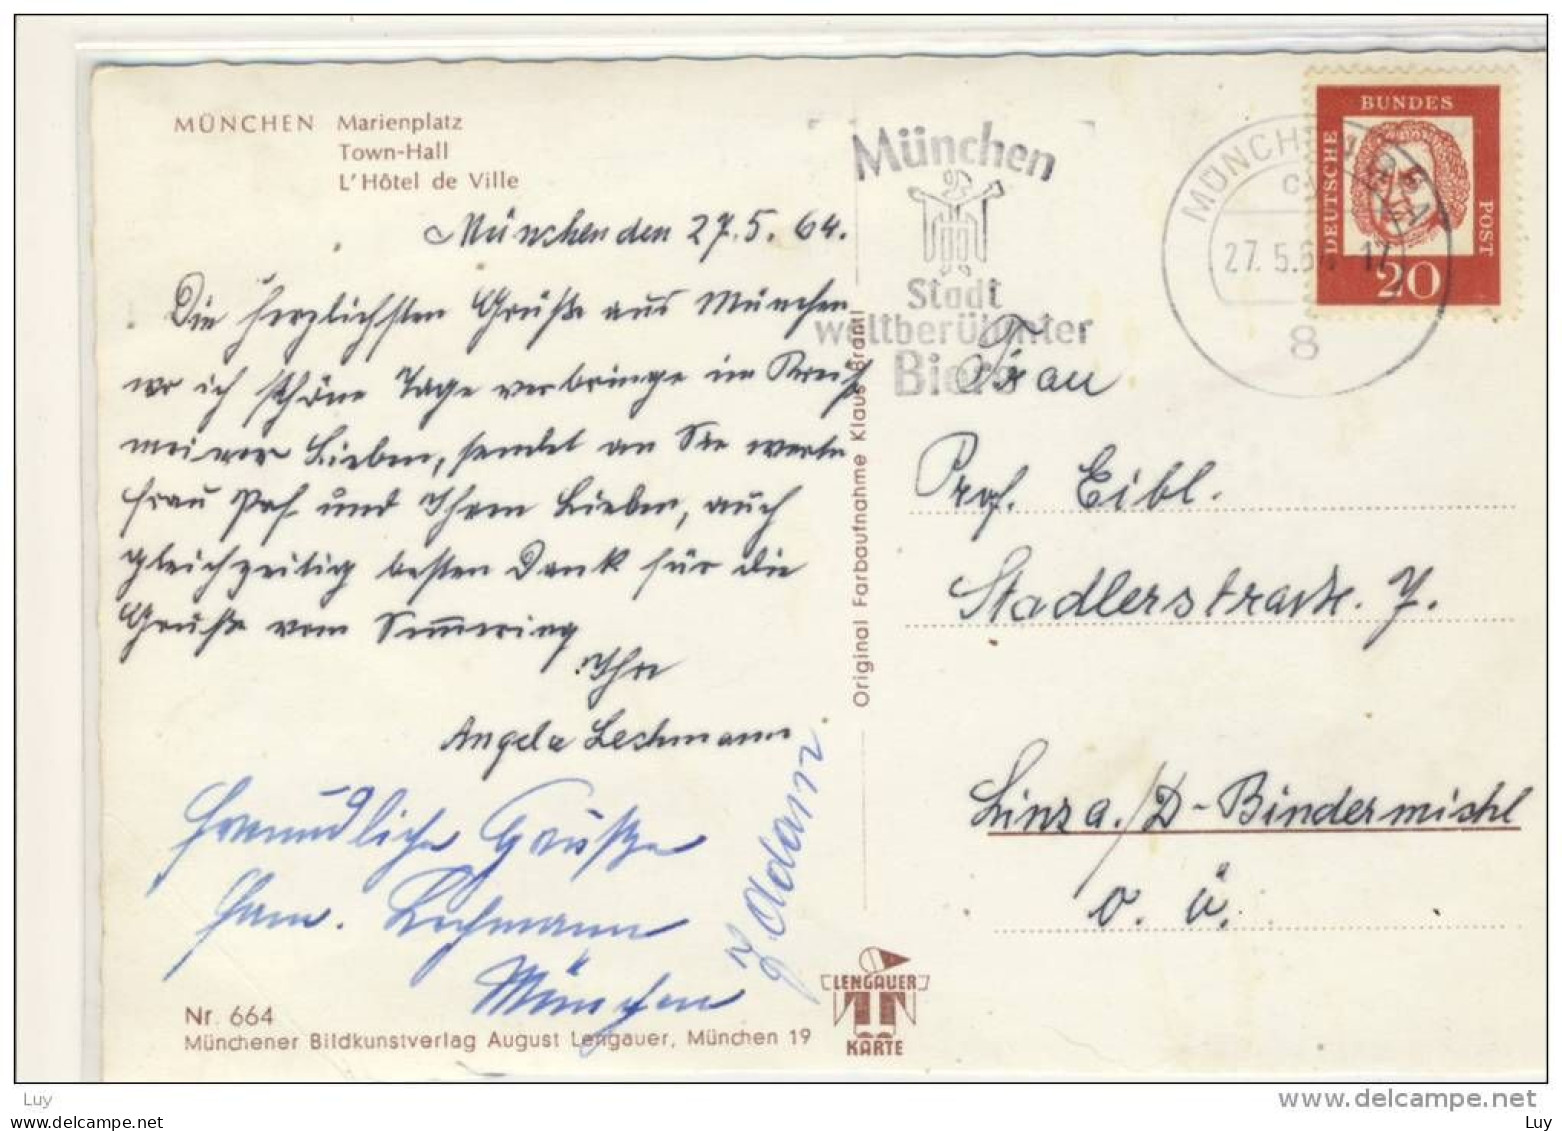 MÜNCHEN Marienplatz
Town-Hall
L'Hôtel de Ville
München den 27. 5. 64.
Die herzlichsten Grüße aus München
wo ich schöne Tage verbringe im Kreise
meiner Lieben, sendet an Sie werte
Frau Prof und Ihren Lieben, auch
gleichzeitig besten Dank für die
Grüße vom Semmering
Ihre
Angela Lechmann
Freundliche Grüße
Fam. Lechmann
München
J. Adam
Nr. 664
Münchener Bildkunstverlag August Lengauer, München 19
Original Farbaufnahme Klaus Brantl
LENGAUER
KARTE
München
Stadt
weltberühmter
Biere
MÜNCHEN
27. 5. 64 17
8
DEUTSCHE
BUNDES
POST
20
Frau
Prof. Eibl.
Stadlerstraße. 7.
Linz a./D-Bindermichl
O. Ö.
Luy
www.delcampe.net
Luy
www.delcampe.net
Luy